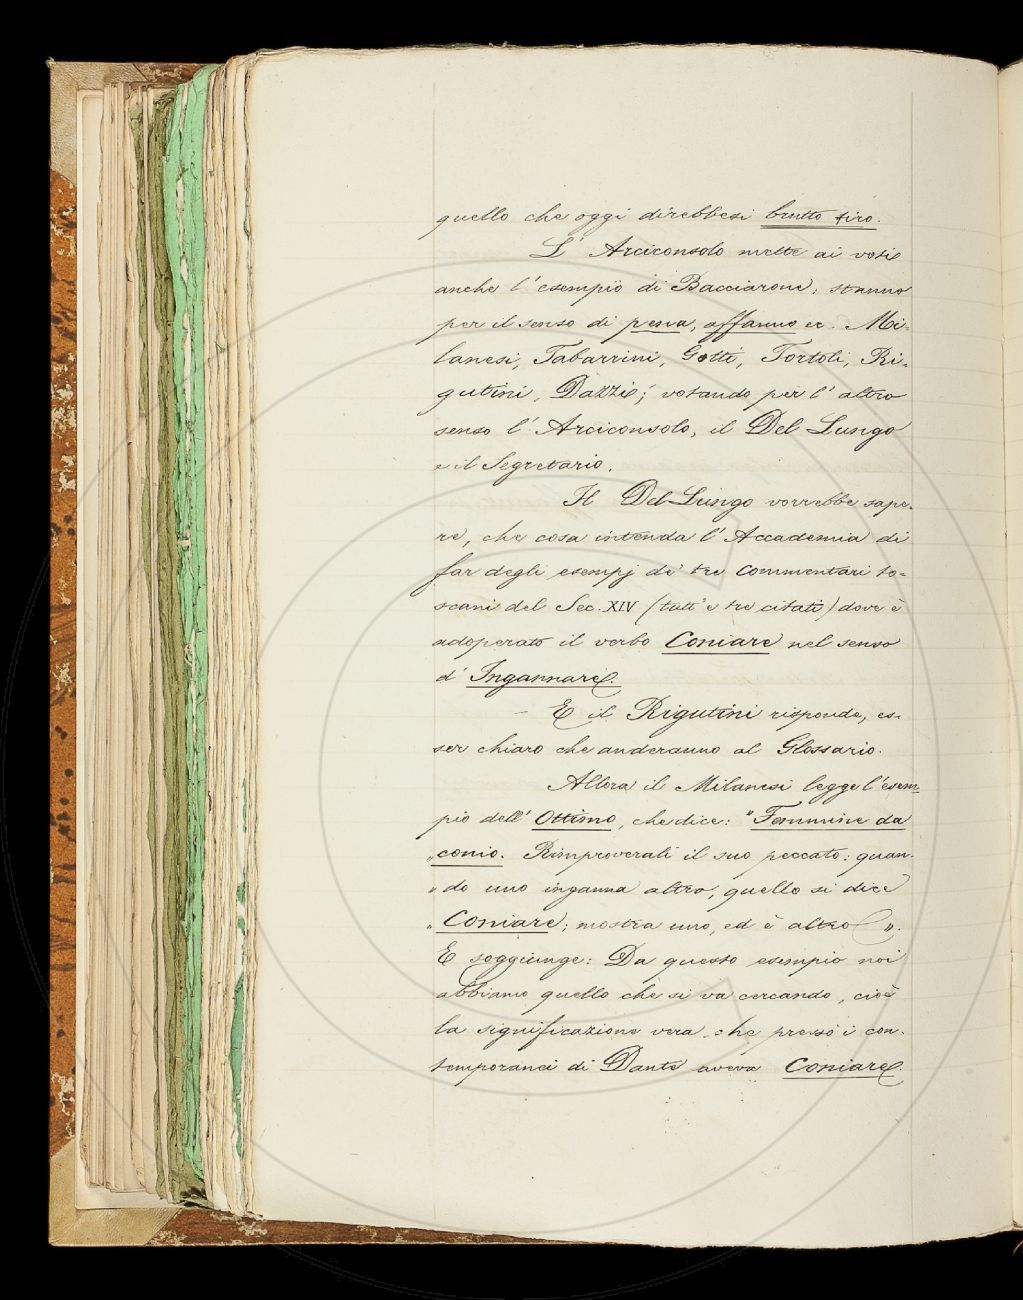 quello che oggi direbbesi brutto tiro.
L' Arciconsolo mette ai voti
anche l'esempio di Bacciarone; stanno
per il senso di pena, affanno ec. Mi-
lanesi, Tabarrini, Gotti, Tortoli, Ri-
gutini, Dazzi; votando per l'altro
senso l'Arciconsolo, il Del Lungo
e il Segretario.
Il Del Lungo vorrebbe sape-
re, che cosa intenda l'Accademia di
far degli esempj de' tre Commentari to-
scani del Sec. XIV (tutt'e tre citati) dove è
adoperato il verbo Coniare nel senso
d'Ingannare.
– E il Rigutini risponde, es-
ser chiaro che anderanno al Glossario.
Allora il Milanesi legge l'esem-
pio dell'Ottimo, che dice: "Femmine da
"conio. Rimproverali il suo peccato: quan-
"do uno inganna altro, quello si dice
"Coniare; mostra uno, ed è altro ".
E soggiunge: Da questo esempio noi
abbiamo quello che si va cercando, cioè
la significazione vera che presso i con-
temporanei di Dante aveva Coniare.